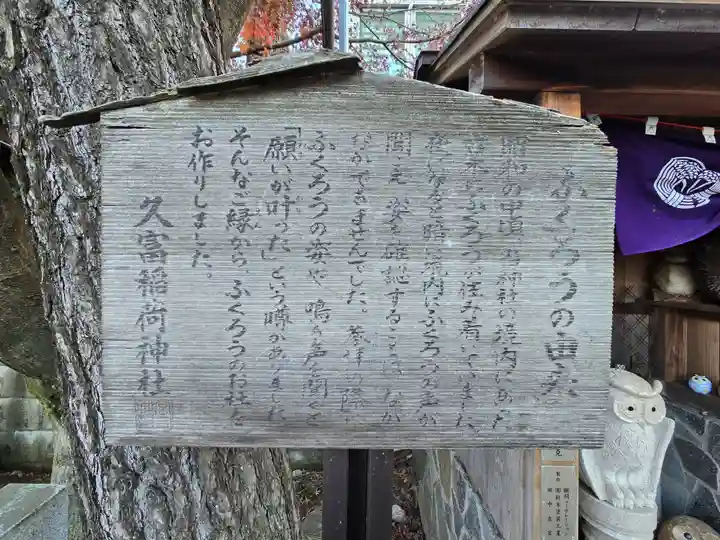 ふくろうの由来
昭和の中頃、当神社の境内にあった
古木にふくろうが住み着いていました。
夜になると暗い境内にふくろうの声が
聞こえ、姿を確認することはなか
なかできませんでした。参拝の際に
ふくろうの姿や、鳴き声を聞くと
「願いが叶った」という噂がありました。
そんなご縁から、ふくろうのお社を
お作りしました。
久富稲荷神社